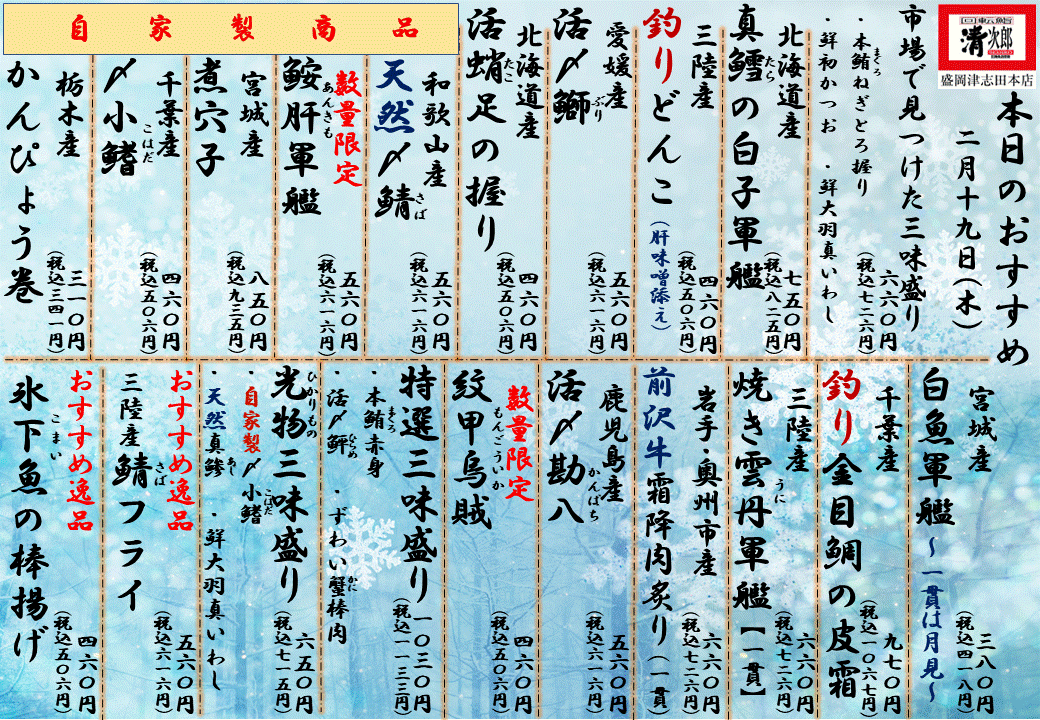 回転鮨
清次郎
盛岡津志田本店
本日のおすすめ
二月十九日(木)
市場で見つけた三味盛り
・本鮪ねぎとろ握り
まぐろ
・鮮初かつお ・鮮大羽真いわし
六六〇円
(税込七二六円)
北海道産
真鱈の白子軍艦
たら
七五〇円
(税込八二五円)
三陸産
釣りどんこ(肝味噌添え)
四六〇円
(税込五〇六円)
愛媛産
活〆鰤
ぶり
五六〇円
(税込六一六円)
北海道産
活蛸足の握り
たこ
四六〇円
(税込五〇六円)
自家製商品
和歌山産
天然〆鯖
さば
五六〇円
(税込六一六円)
数量限定
鮟肝軍艦
あんきも
五六〇円
(税込六一六円)
宮城産
煮穴子
八五〇円
(税込九三五円)
千葉産
〆小鰭
こはだ
四六〇円
(税込五〇六円)
栃木産
かんぴょう巻
三一〇円
(税込三四一円)
宮城産
白魚軍艦~一貫は月見~
三八〇円
(税込四一八円)
千葉産
釣り金目鯛の皮霜
九七〇円
(税込一〇六七円)
三陸産
焼き雲丹軍艦【一貫】
うに
六六〇円
(税込七二六円)
岩手・奥州市産
前沢牛霜降肉炙り(一貫)
六六〇円
(税込七二六円)
鹿児島産
活〆勘八
かんぱち
五六〇円
(税込六一六円)
数量限定
紋甲烏賊
もんごういか
四六〇円
(税込五〇六円)
特選三味盛り
・本鮪赤身
まぐろ
・活〆鮃 ・ずわい蟹棒肉
ひらめ
かに
一〇三〇円
(税込一一三三円)
光物三味盛り
ひかりもの
・自家製〆小鰭
こはだ
・天然真鰺 ・鮮大羽真いわし
あじ
六五〇円
(税込七一五円)
おすすめ逸品
三陸産鯖フライ
さば
五六〇円
(税込六一六円)
おすすめ逸品
氷下魚の棒揚げ
こまい
四六〇円
(税込五〇六円)